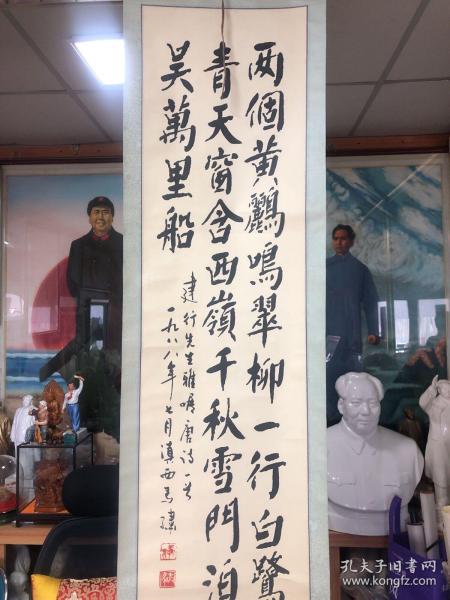 两個黄鸝鳴翠柳一行白鷺
青天窗含西嶺千秋雪門泊
吴萬里船
建行先生雅嘱唐诗一首
一九八八年七月滇西
孔夫子旧书网
www.kongfz.com